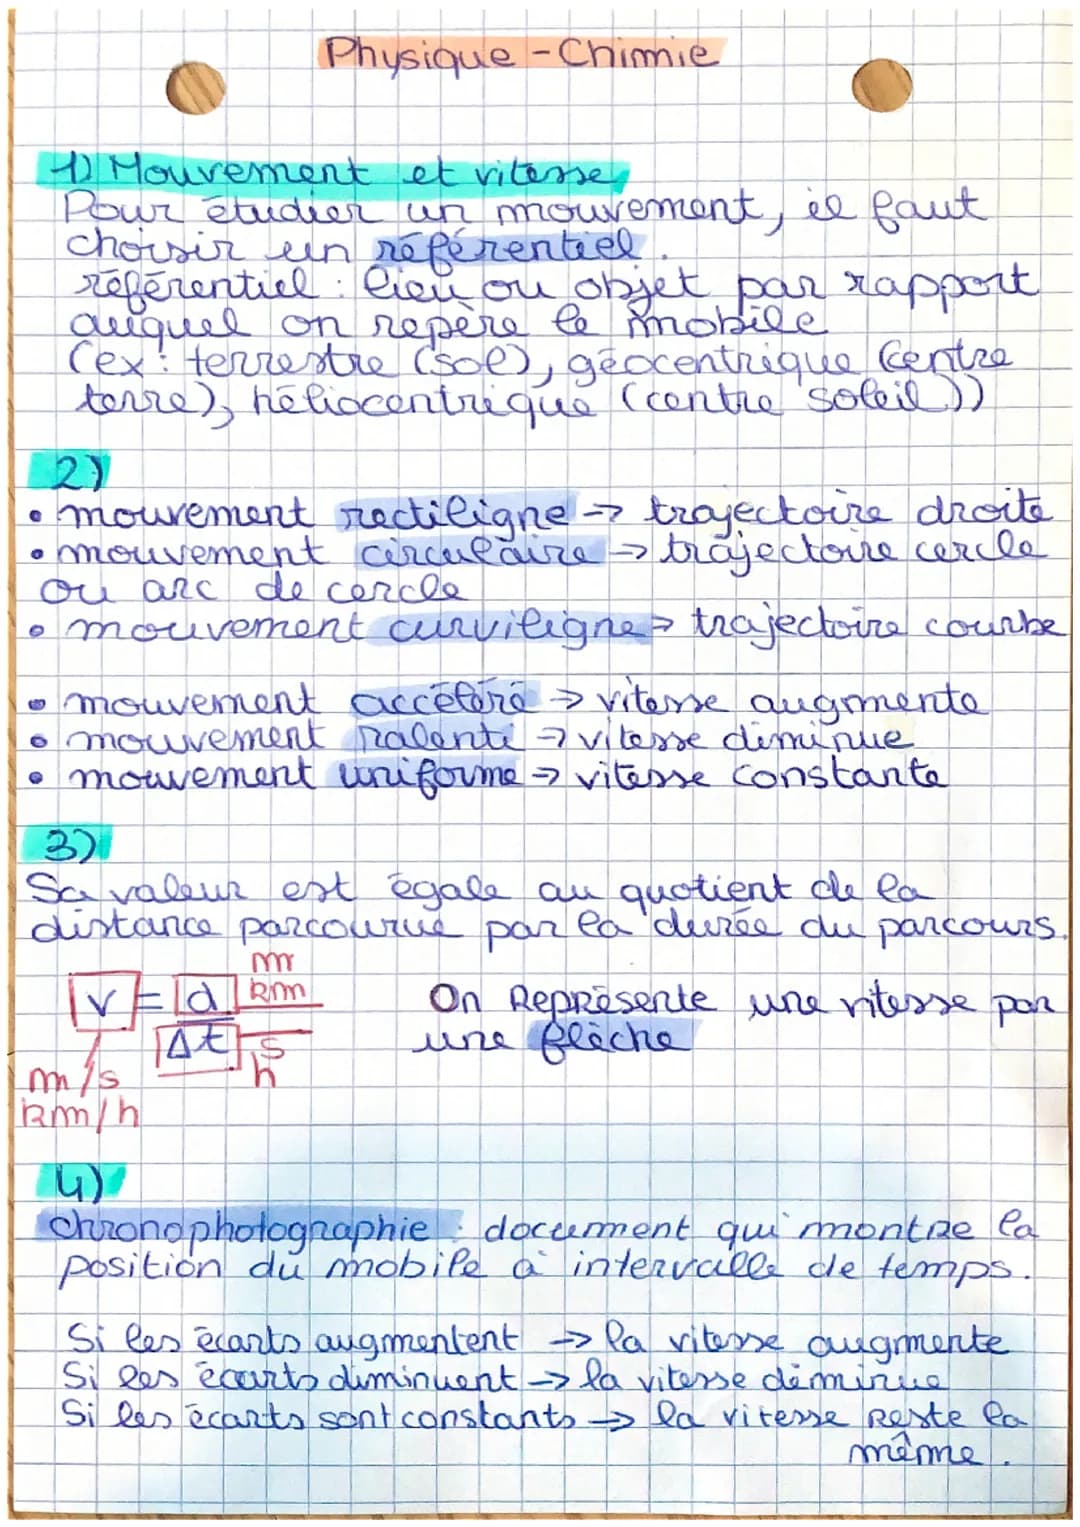 Physique - Chimie
1) Mouvement et vitesse
Pour étudier un mouvement, il faut
choisir un référentiel.
référentiel : lieu ou objet par rapport
auquel on repère le mobile
(ex : terrestre (sol), géocentrique (centre
terre), héliocentrique (centre soleil))
2)
• mouvement rectiligne → trajectoire droite
• mouvement circulaire → trajectoire cercle
ou arc de cercle
• mouvement curviligne → trajectoire courbe
• mouvement accéléré → vitesse augmente
• mouvement ralenti → vitesse diminue
• mouvement uniforme → vitesse constante
3)
Sa valeur est égale au quotient de la
distance parcourue par la durée du parcours.
m
v = d km
Δt s
h
m/s
km/h
On Représente une vitesse par
une flèche
4)
chronophotographie : document qui montre la
position du mobile à intervalle de temps.
Si les écarts augmentent → la vitesse augmente
Si les écarts diminuent → la vitesse diminue
Si les écarts sont constants → la vitesse Reste la
même.